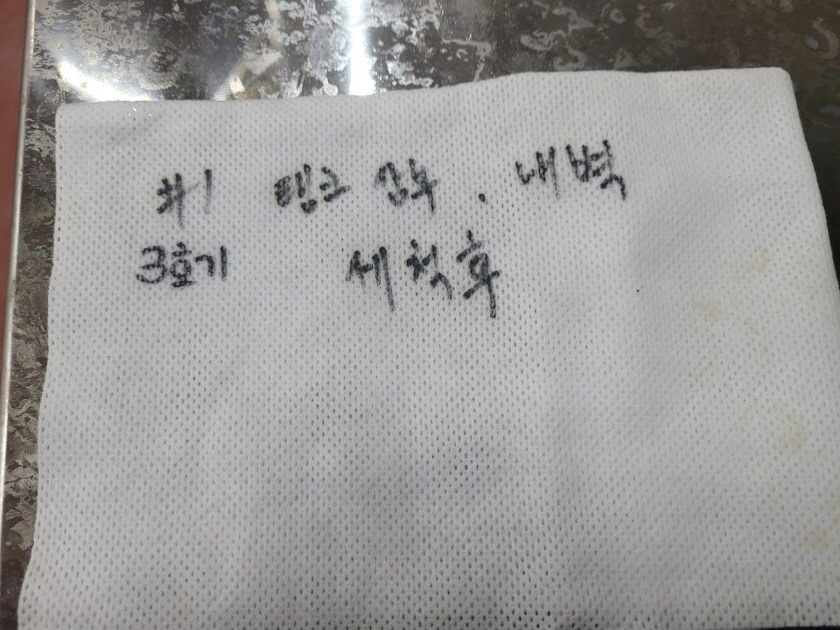 #1 탱크 상부 . 내벽
3호기 세척후